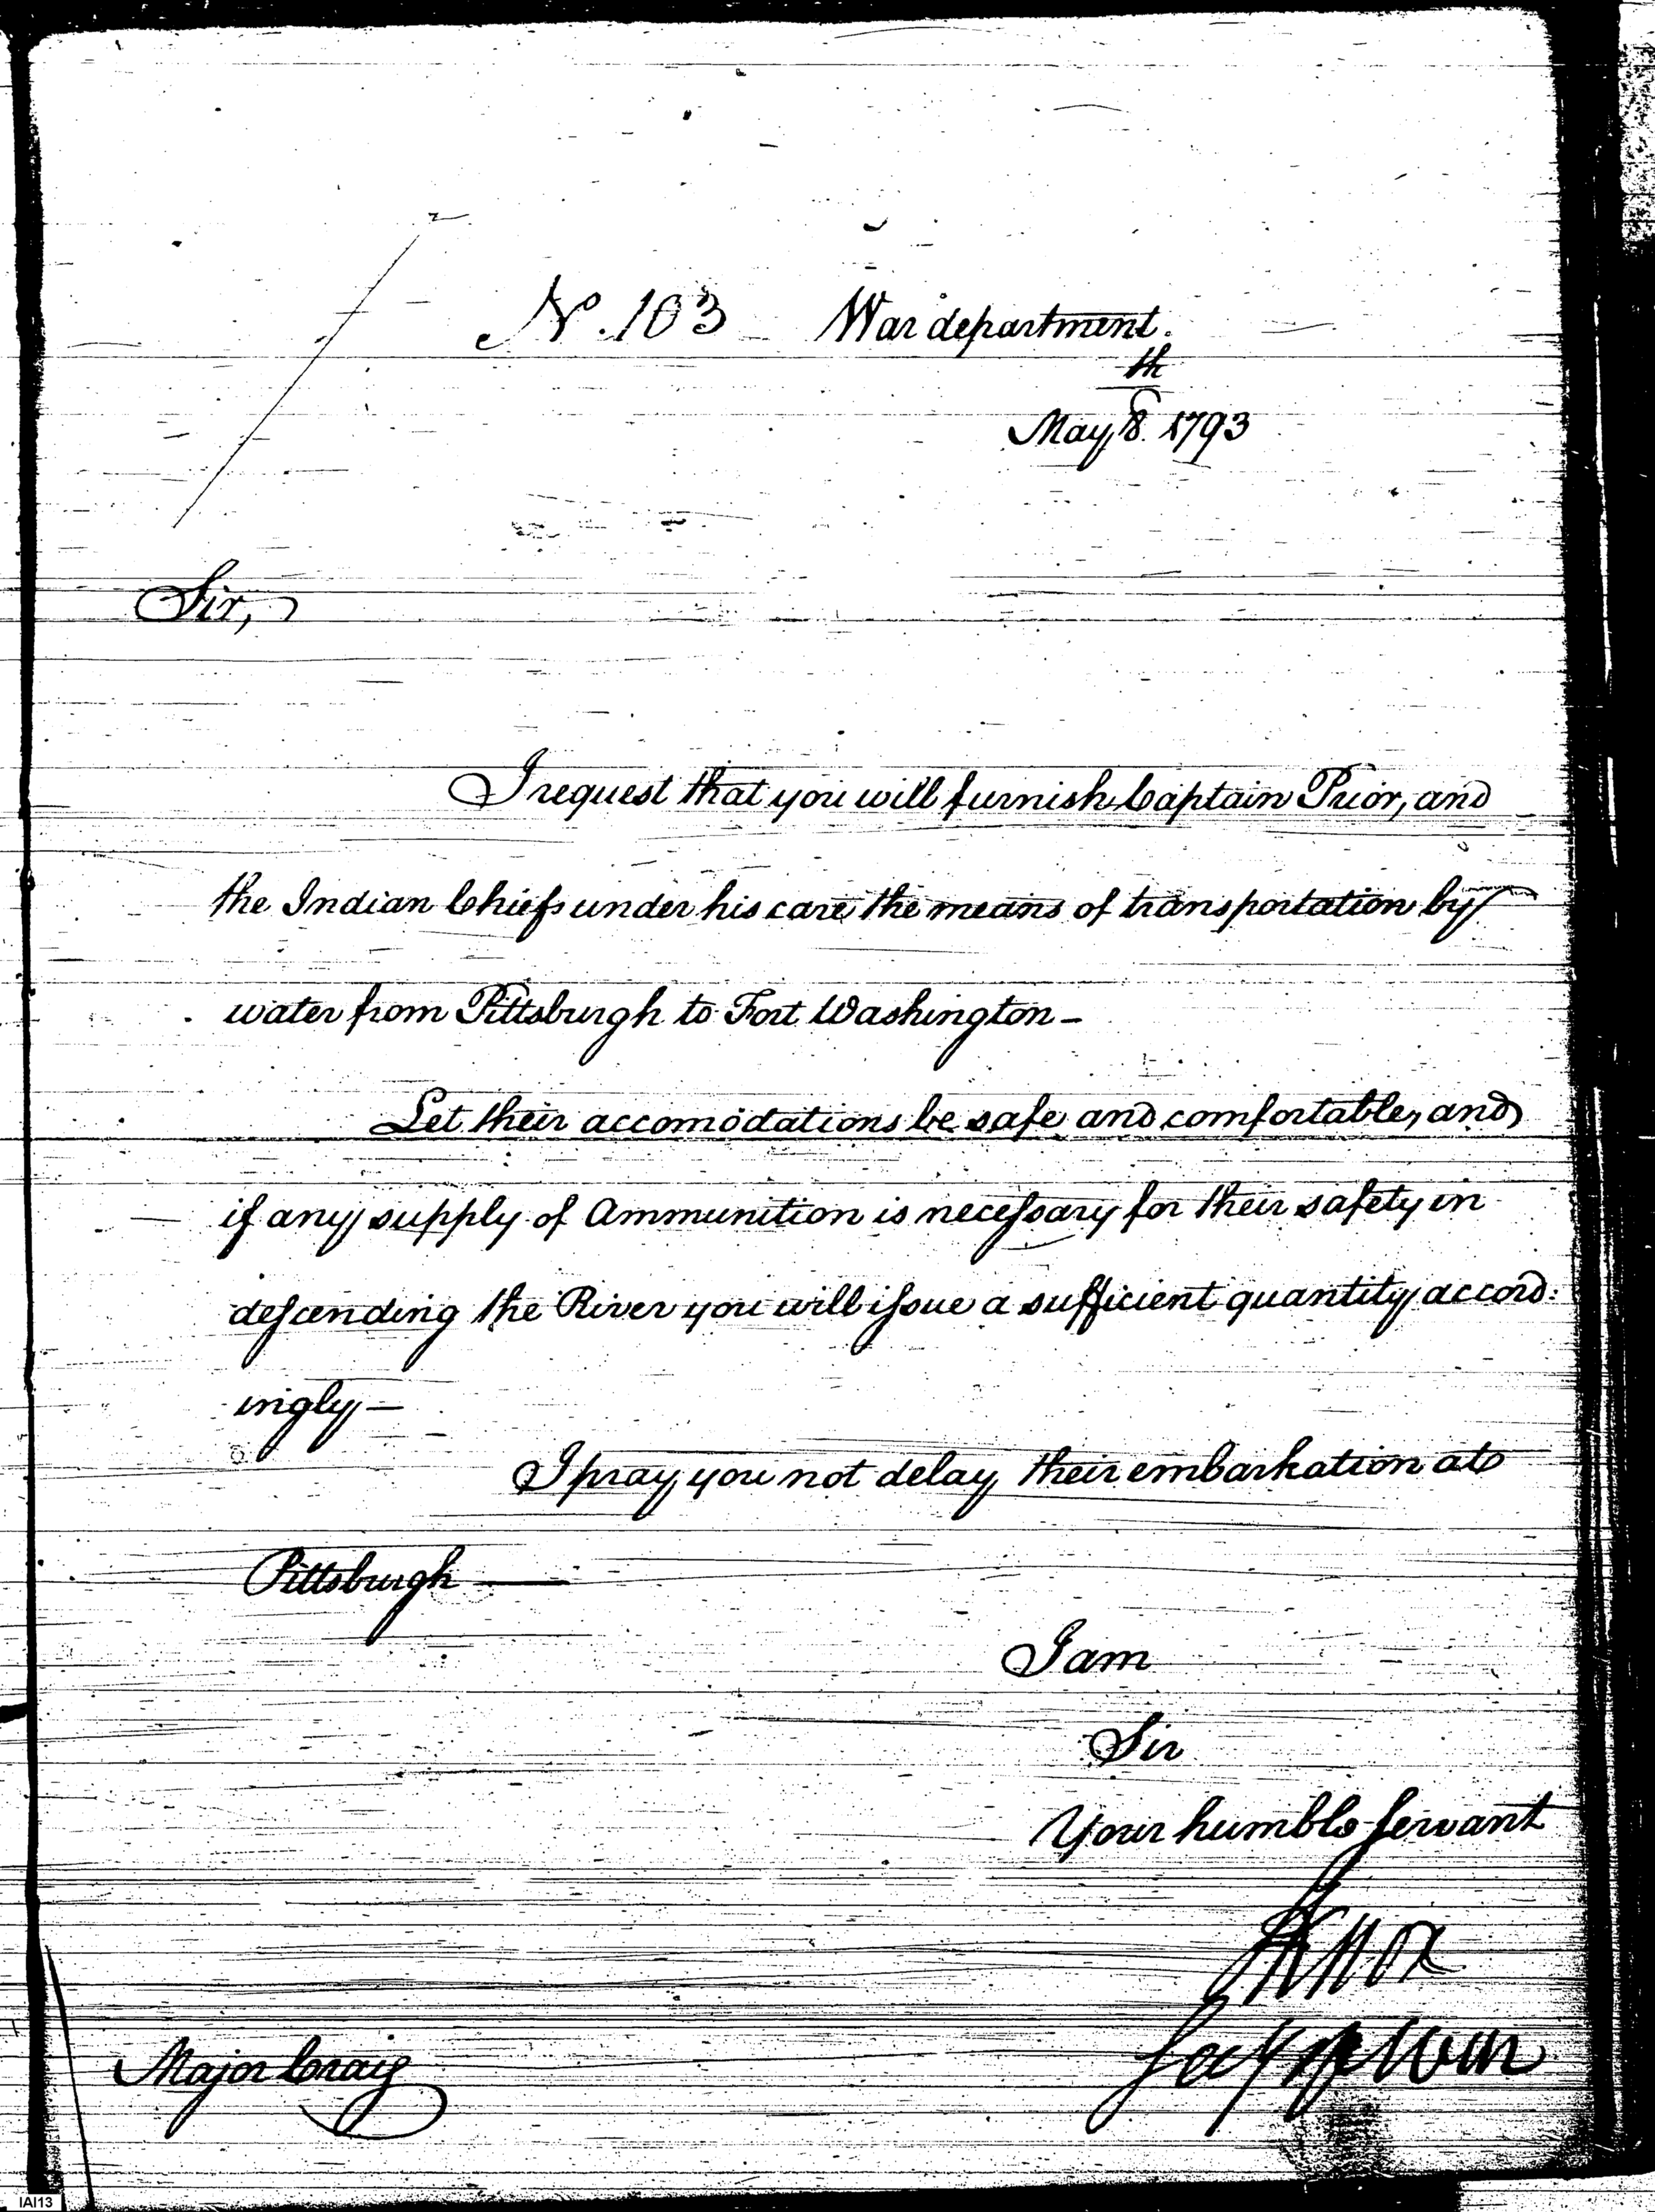 No. 103 War department.
th
May, 8. 1793
Sir,
I request that you will furnish Captain Prior, and
the Indian Chiefs under his care the means of transportation by
water from Pittsburgh to Fort Washington -
Let their accomodations be safe and comfortable, and
if any supply of Ammunition is necessary for their safety in
descending the River you will issue a sufficient quantity accord:
ingly -
I pray you not delay their embarkation at
Pittsburgh —
I am
Sir
Your humble servant
HKnox
Secy of War
Major Craig
IAI13